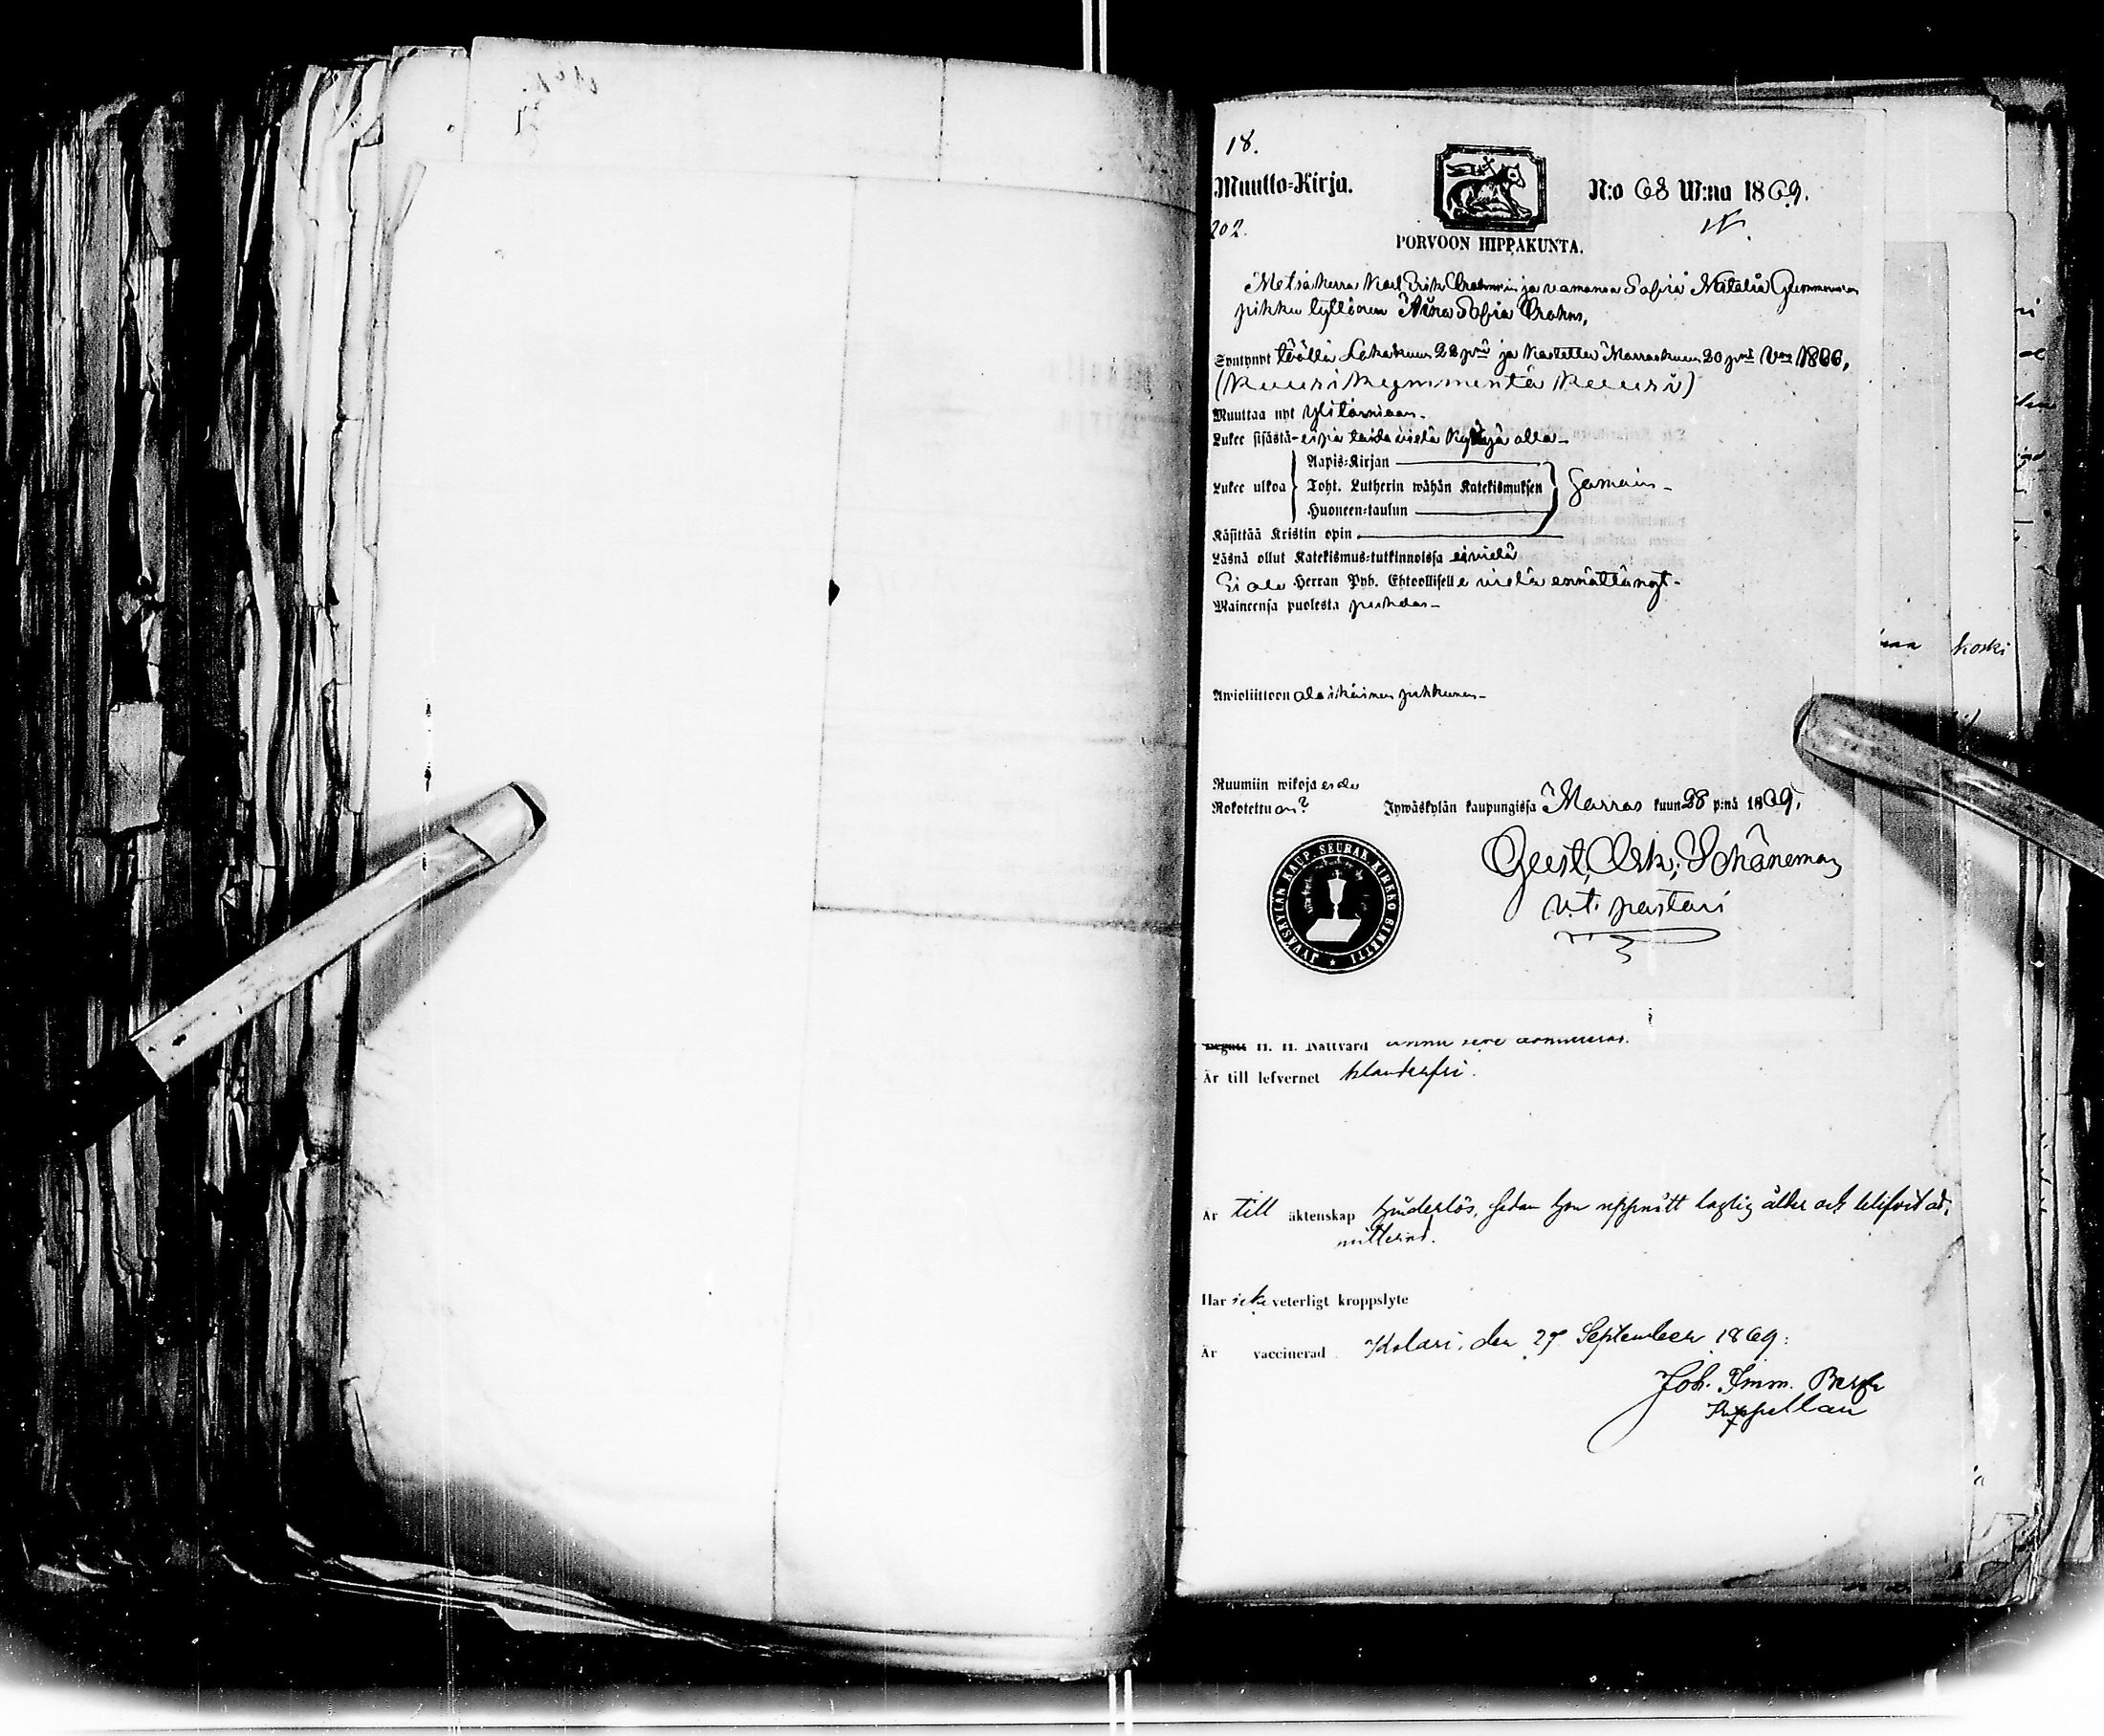 18.
Muutto-Kirja.
N:o 68 W:na 1869.
202.
PORVOON HIPPAKUNTA.
Metsäherra Karl Erik ja vaimonsa Sofia Natalia
pikku tyttönen Aina Sofia
Syntynyt täällä Lokakuun 22 p:nä ja kastettu Marraskuun 20 p:nä V:na 1866,
(Kuusikymmentä kuusi)
Muuttaa nyt Ylitornioon.
Lukee sisästä - eipä taida vielä kysyjä olla -
Aapis-Kirjan
Lukee ulkoa Toht. Lutherin wähän Katekismuksen Samoin -
Huoneen-taulun
Käsittää Kristin opin
Läsnä ollut Katekismus-tutkinnoissa ei vielä
Ei ole Herran Pyh. Ehtoolliselle vielä ennättänyt -
Maineensa puolesta puhdas -
Awioliittoon alaikäinen pikkunen -
Ruumiin wikoja ei ole
Rokotettu on?
Jywäskylän kaupungissa Marras kuun 28 p:nä 1869.
Gust. Osk. Schöneman
v.t. pastori
JYVÄSKYLÄN KAUP. SEURAK. KIRKKO SINETTI
H. H. Nattvard ännu icke admitterad.
Är till lefvernet klanderfri.
Är till äktenskap hinderlös, sedan hon uppnått laglig ålder och blifvit ad-
mitterad.
Har icke veterligt kroppslyte
Är vaccinerad
Kolari, den 27 September 1869.
Joh. Imm. Bergh
Kappellan
koski